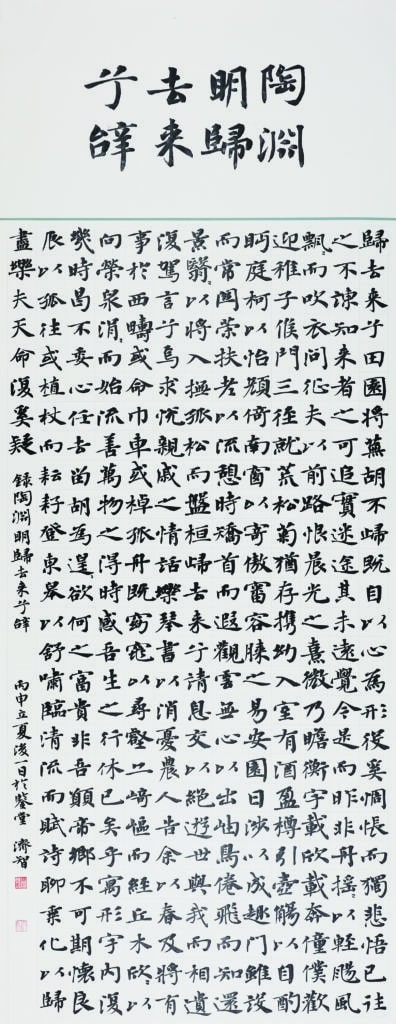 陶淵
明歸
去來
兮辭
歸去來兮田園將蕪胡不歸既自以心為形役奚惆悵而獨悲悟已往
之不諫知來者之可追實迷途其未遠覺今是而昨非舟搖〻以輕颺風
飄〻而吹衣問征夫以前路恨晨光之熹微乃瞻衡宇載欣載奔僮僕歡
迎稚子候門三徑就荒松菊猶存携幼入室有酒盈樽引壺觴以自酌
眄庭柯以怡顏倚南窗以寄傲審容膝之易安園日涉以成趣門雖設
而常關策扶老以流憩時矯首而遐觀雲無心以出岫鳥倦飛而知還
景翳〻以將入撫孤松而盤桓歸去來兮請息交以絕遊世與我而相遺
復駕言兮焉求悅親戚之情話樂琴書以消憂農人告余以春及將有
事於西疇或命巾車或棹孤舟既窈窕以尋壑亦崎嶇而經丘木欣〻以
向榮泉涓〻而始流善萬物之得時感吾生之行休已矣乎寓形宇內復
幾時曷不委心任去留胡為遑〻欲何之富貴非吾願帝鄉不可期懷良
辰以孤往或植杖而耘耔登東皋以舒嘯臨清流而賦詩聊乘化以歸
盡樂夫天命復奚疑 錄陶淵明歸去來兮辭 丙申立夏後一日於鑒堂 濟智